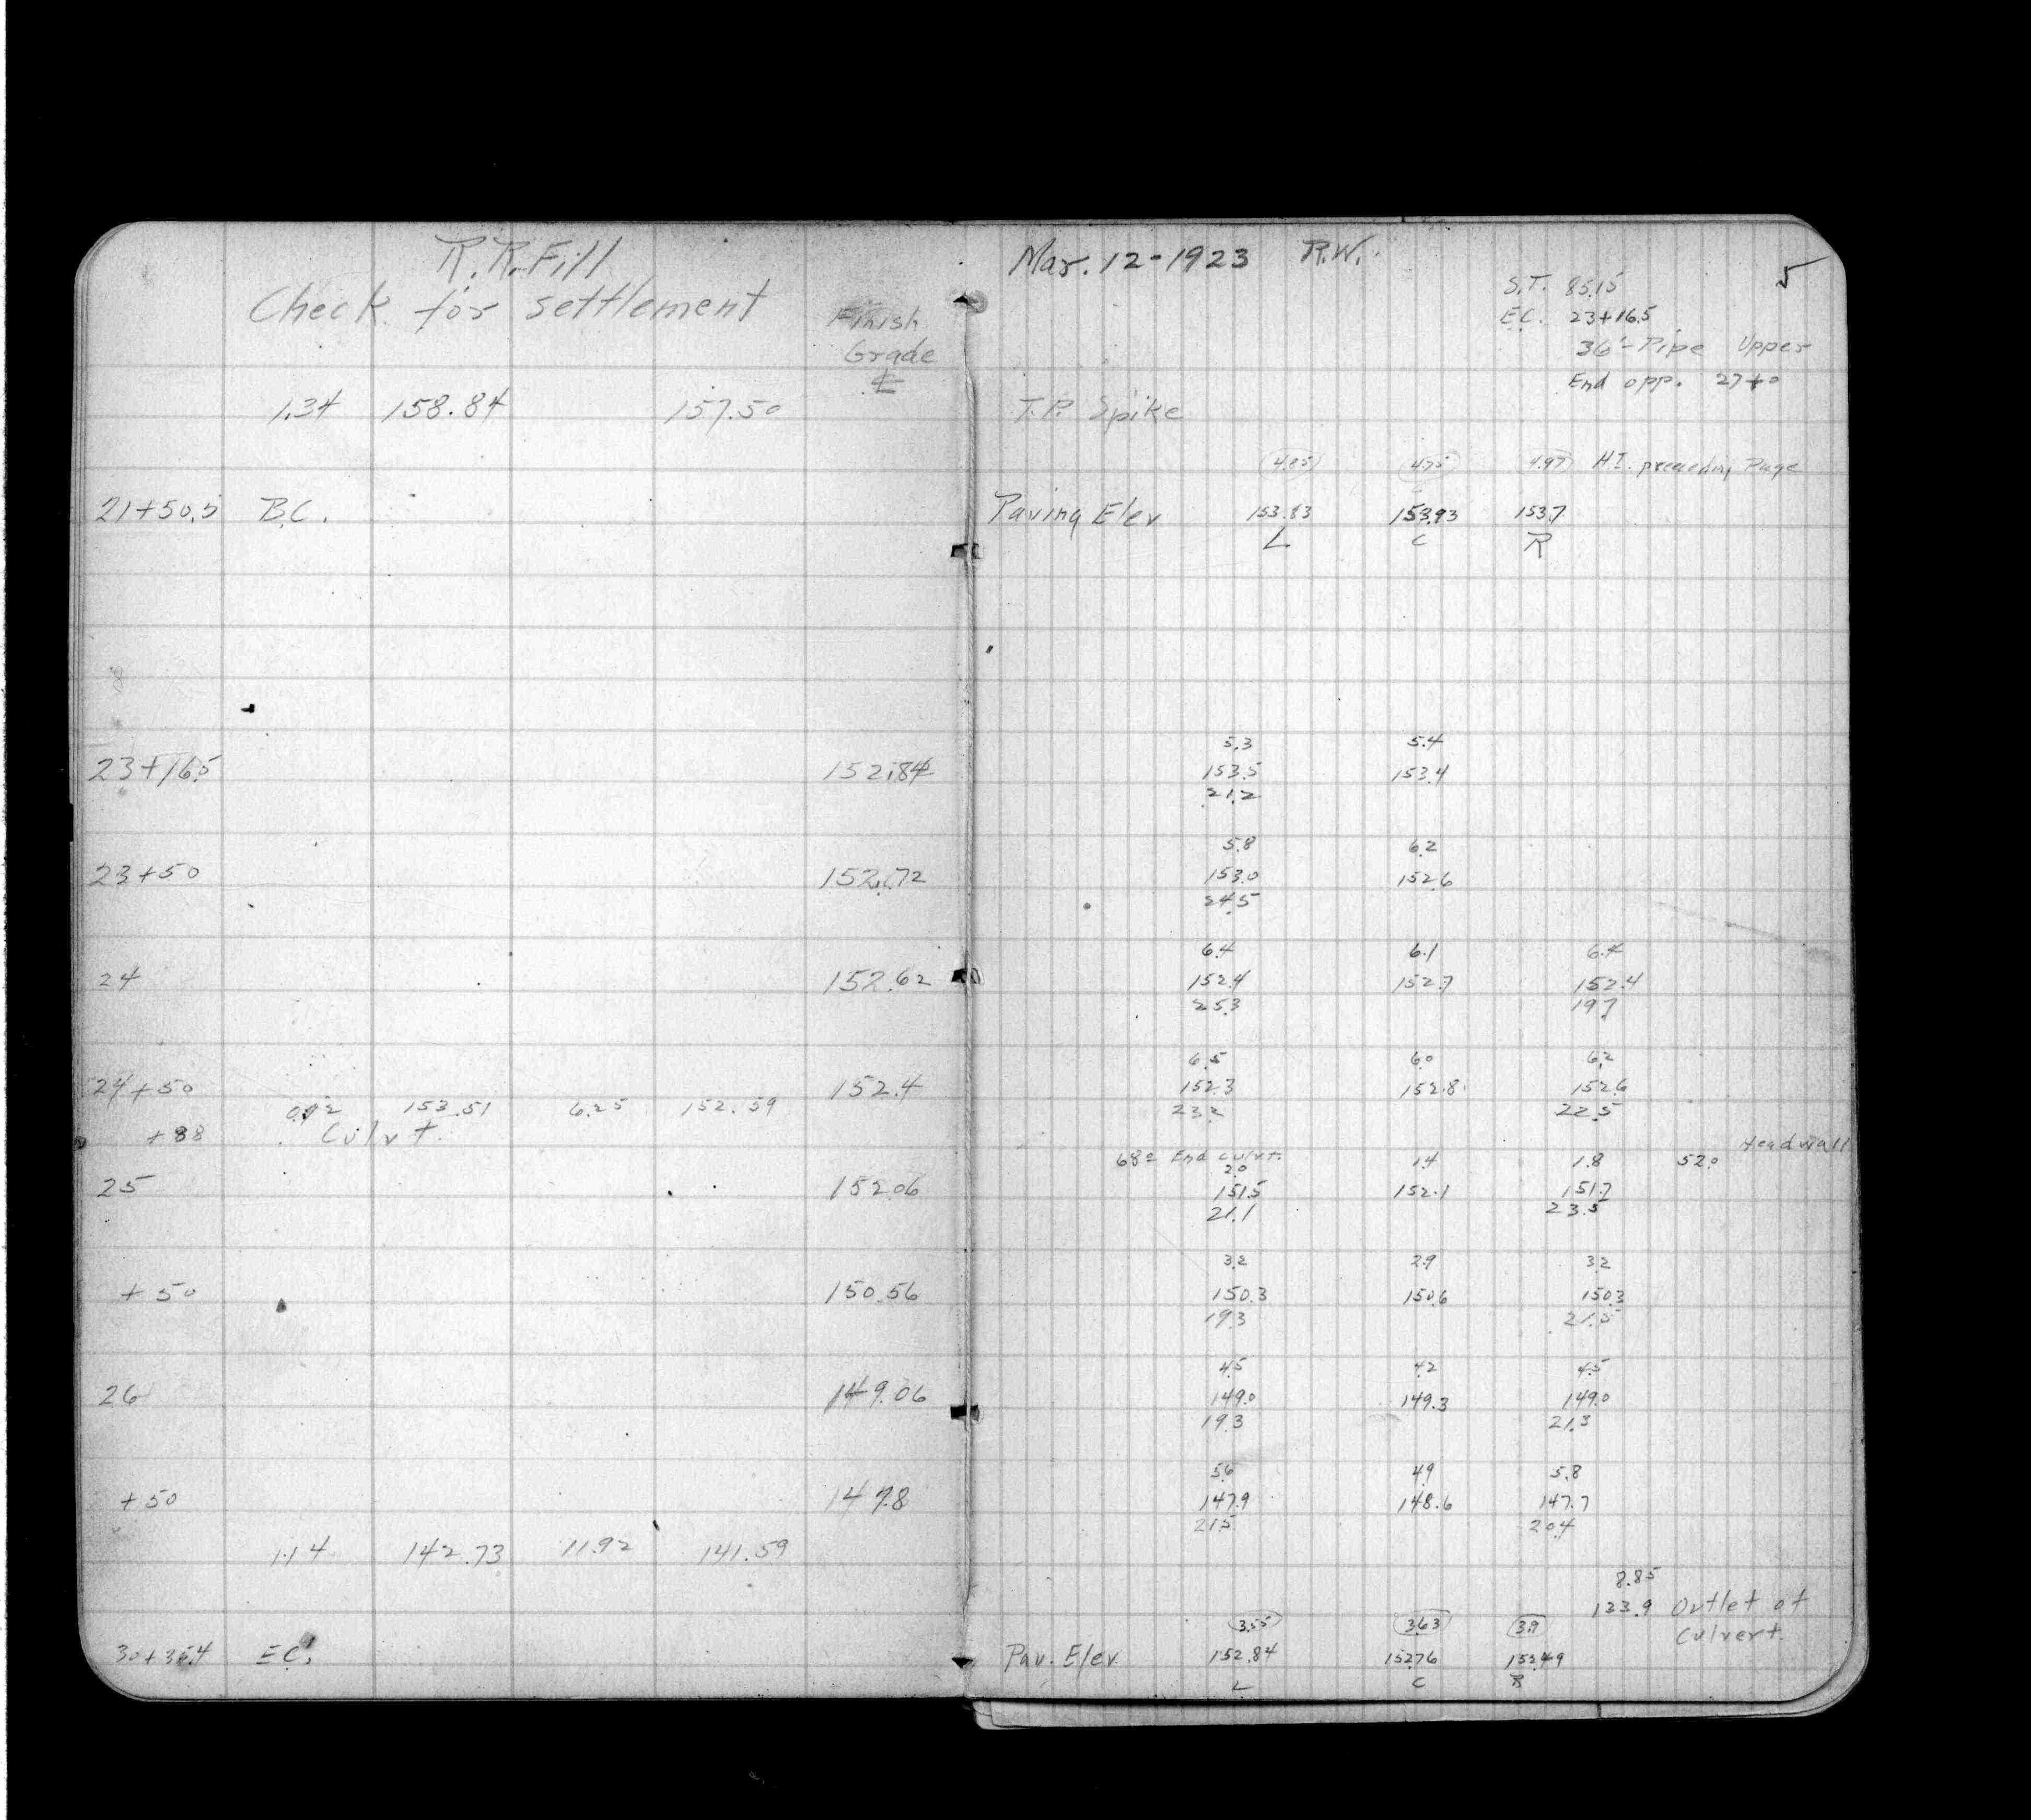 R.R. Fill
Check for settlement
Finish
Grade
℄
1.34 158.84 157.50
21+50.5 B.C.
23+16.5 152.84
23+50 152.72
24 152.62
24+50 152.4
0.92 153.51 6.25 152.59
+88 Culvt.
25 152.06
+50 150.56
26 149.06
+50 147.8
1.14 142.73 11.92 141.59
30+36.4 E.C.
Mar. 12-1923 R.W. 5
S.T. 85.15
E.C. 23+16.5
36"-Pipe Upper
End opp. 27+0
T.P. Spike
4.85 4.75 4.97 H.I. preceding Page
Paving Elev 153.83 153.93 153.7
L C R
5.3 5.4
153.5 153.4
21.2
5.8 6.2
153.0 152.6
24.5
6.4 6.1 6.4
152.4 152.7 152.4
25.3 19.7
6.5 6.0 6.2
152.3 152.8 152.6
23.2 22.5
Headwall
68.0 End culvt. 1.4 1.8 52.0
2.0
151.5 152.1 151.7
21.1 23.5
3.2 2.9 3.2
150.3 150.6 150.3
19.3 21.5
4.5 4.2 4.5
149.0 149.3 149.0
19.3 21.3
5.6 4.9 5.8
147.9 148.6 147.7
21.5 20.4
8.85
133.9 Outlet of
Culvert
3.55 3.63 3.9
Pav. Elev. 152.84 152.76 152.49
L C R